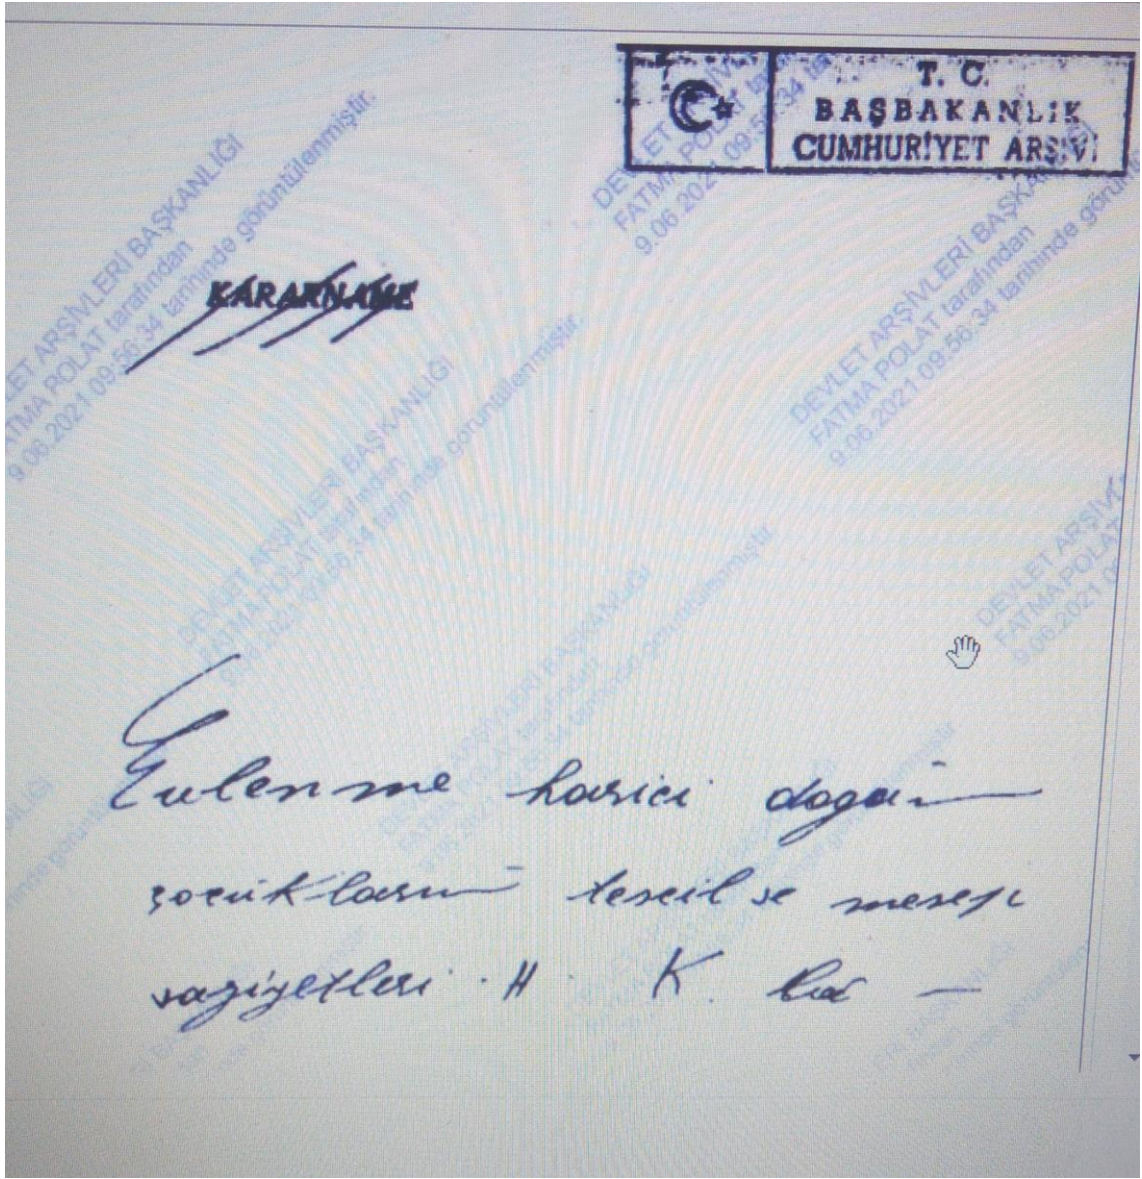 T. C.
BAŞBAKANLIK
CUMHURİYET ARŞİVİ
KARARNAME
DEVLET ARŞİVLERİ BAŞKANLIĞI
FATMA POLAT tarafından
9.06.2021 09:56:34 tarihinde görüntülenmiştir.
Evlenme harici doğan
çocukların tescil ve
vaziyetleri H. K.